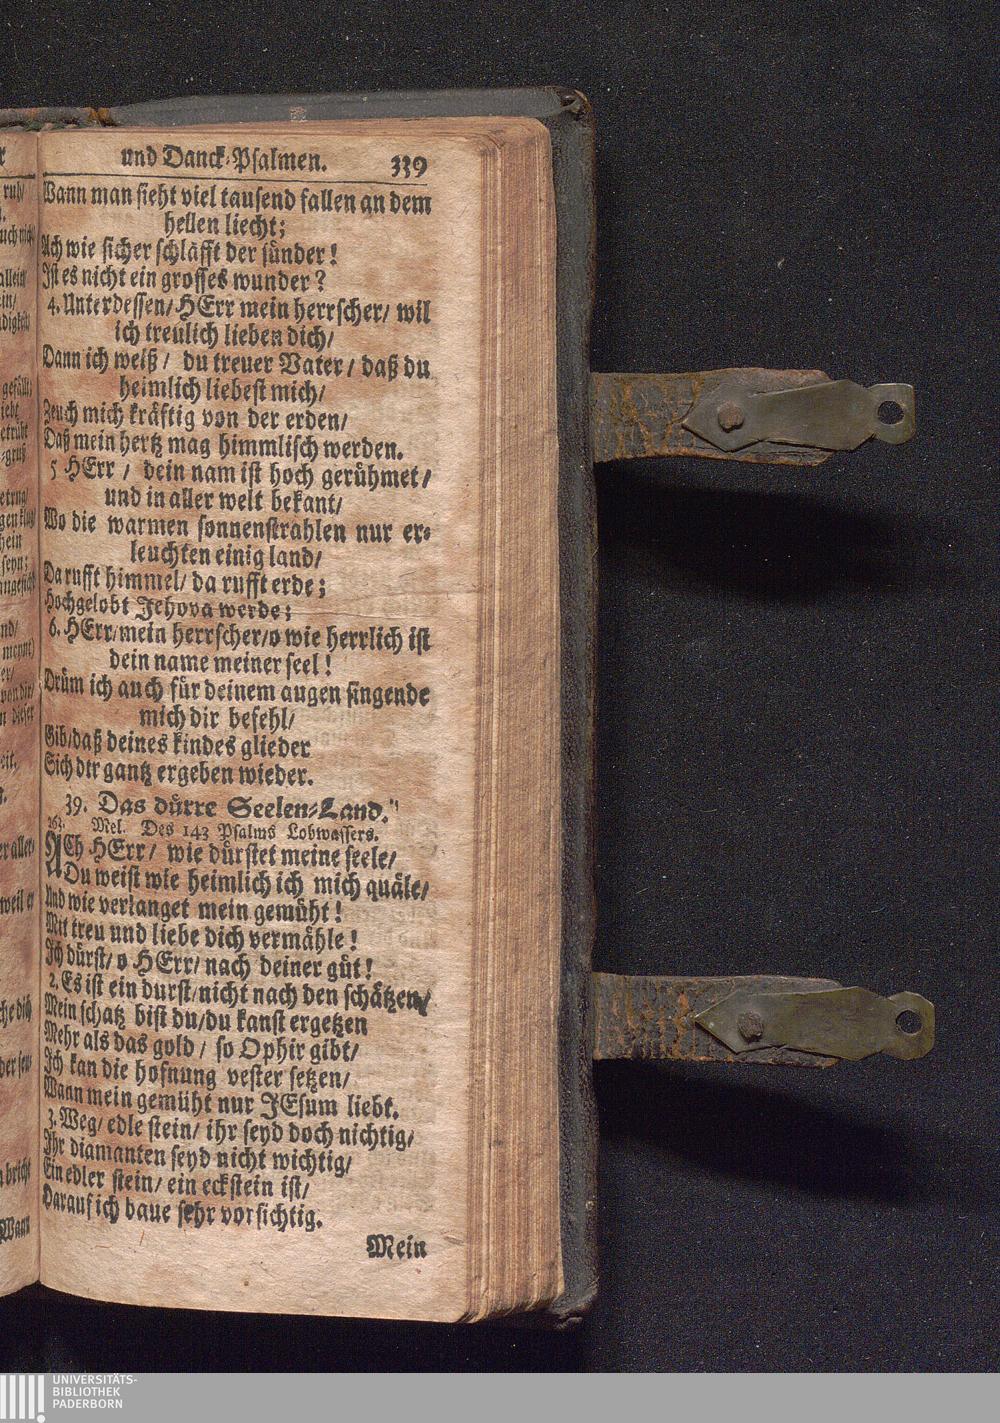 und Danck-Psalmen. 339
Wann man sieht viel tausend fallen an dem
hellen liecht;
Ach wie sicher schläfft der sünder!
Ist es nicht ein grosses wunder?
4. Unterdessen/ HErr mein herrscher/ wil
ich treulich lieben dich/
Dann ich weiß / du treuer Vater / daß du
heimlich liebest mich/
Zeuch mich kräftig von der erden/
Daß mein hertz mag himmlisch werden.
5 HErr / dein nam ist hoch gerühmet/
und in aller welt bekant/
Wo die warmen sonnenstrahlen nur er-
leuchten einig land/
Da rufft himmel/ da rufft erde;
Hochgelobt Jehova werde;
6. HErr/mein herrscher/o wie herrlich ist
dein name meiner seel!
Drüm ich auch für deinem augen singende
mich dir befehl/
Gib/daß deines kindes glieder
Sich dir gantz ergeben wieder.
39. Das dürre Seelen-Land.
263. Mel. Des 143 Psalms Lobwassers.
ACh HErr/ wie dürstet meine seele/
Du weist wie heimlich ich mich quäle/
Und wie verlanget mein gemüht!
Mit treu und liebe dich vermähle!
Ich dürst/ o HErr/ nach deiner güt!
2. Es ist ein durst/nicht nach den schätzen/
Mein schatz bist du/du kanst ergetzen
Mehr als das gold / so Ophir gibt/
Ich kan die hofnung vester setzen/
Wann mein gemüht nur JEsum liebt.
3. Weg/ edle stein/ ihr seyd doch nichtig/
Ihr diamanten seyd nicht wichtig/
Ein edler stein/ ein eckstein ist/
Darauf ich baue sehr vorsichtig.
Mein
UNIVERSITÄTS-
BIBLIOTHEK
PADERBORN